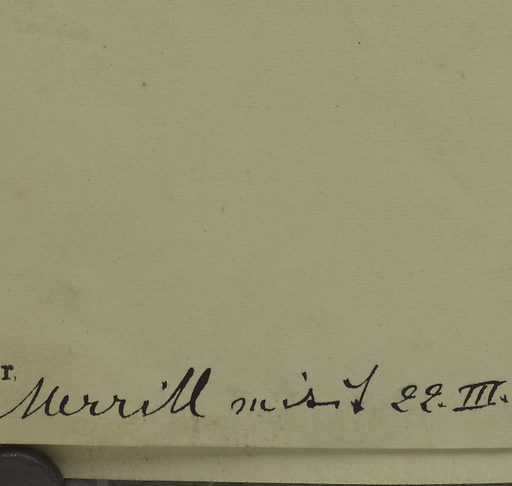 r.
Merrill misit 22. III.